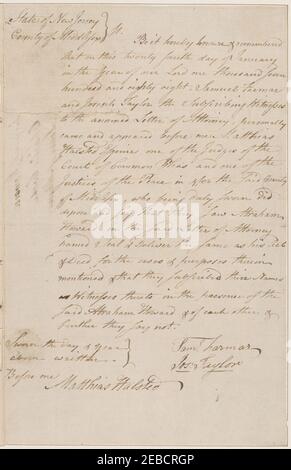 State of New Jersey
County of Middlesex } Ss.
Be it hereby known & remembered
that on this twenty fourth day of January
in the Year of our Lord one thousand seven
hundred and eighty eight Samuel Farmar
and Joseph Taylor the Subscribing Witnesses
to the annexed Letter of Attorney personally
came and appeared before me Matthias
Halsted Esquire one of the Judges of the
Court of Common Pleas and one of the
Justices of the Peace in & for the said County
of Middlesex who being duly Sworn did
depose & say that they saw Abraham
Howard in the said Letter of Attorney
named Seal & deliver the same as his Act
& Deed for the uses & purposes therein
mentioned & that they subscribed their Names
as Witnesses thereto in the presence of the
said Abraham Howard & of each other &
further they say not.
Sworn the day & year
above written
Before me
Saml. Farmar
Jos. Taylor
Matthias Halsted
alamy
Image ID: 2BCRCGP
www.alamy.com